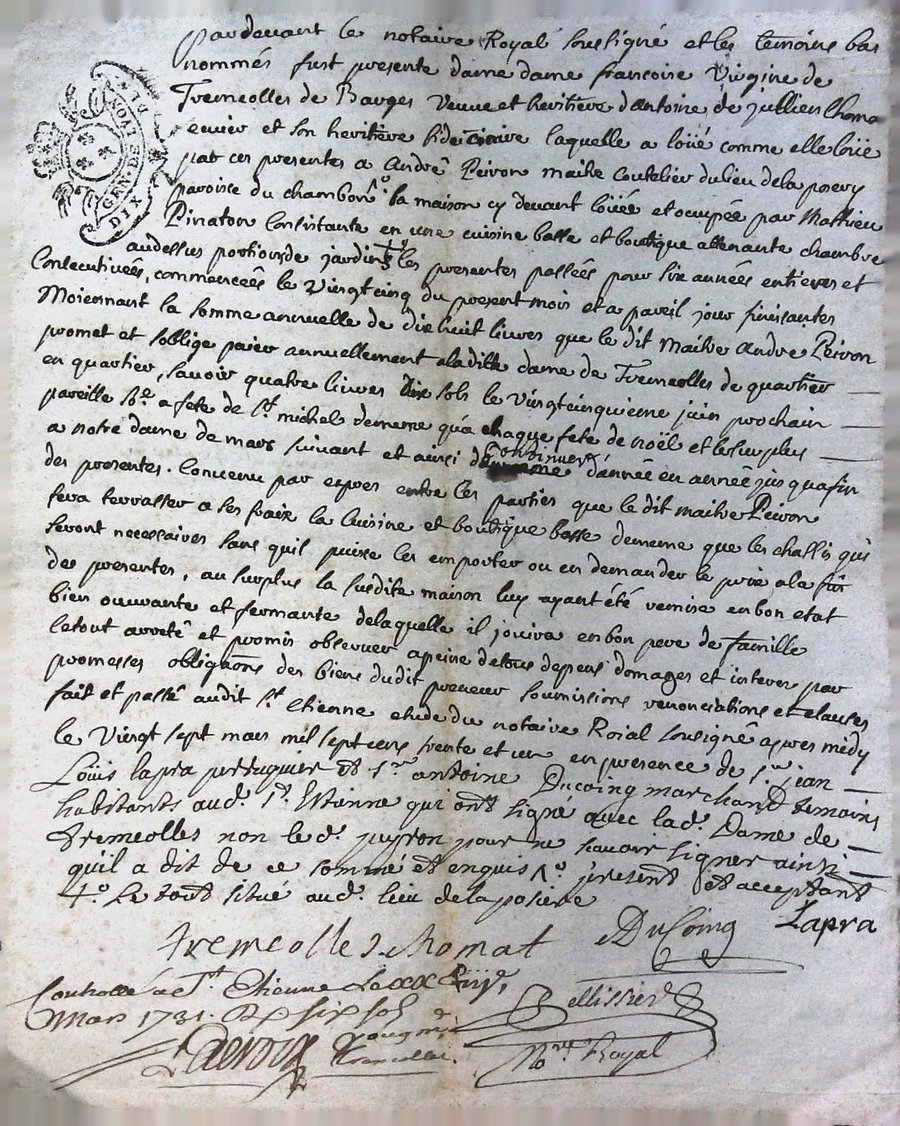 GEN. DE LION
DIX
pardevant le notaire Royal soussigné et les temoins bas
nommés fust presente dame dame francoise Virgine de
Tremeolles de Barges Veuve et heritiere d'antoine de jullien Choma
et son heritiere fideiciaire laquelle a loüé comme elle loüe
par ces presentes a André Peiron maitre coutelier du lieu dela
paroise du chambon la maison cy devant loüée et ocupée par Mathieu
Pinaton Consistante en une cuisine basse et boutique attenante chambre
audessus portion de jardin les presentes passées pour six années entieres et
Consecutivées, commenceés le Vingtcinq du present mois et a pareil jour finissantes
Moiennant la somme annuelle de dixhuit livres que le dit Maitre Andre Peiron
promet et soblige paier annuellement aladitte dame de Tremeolles de quartier
en quartier, savoir quatre livres dix sols le vingtcinquieme juin prochain
pareille so.e a fete de st michel dememe qu'a chaque fete de noël et le surplus
a notre dame de mars suivant et ainsi continuer d'année en année jusqua fin
des presentes. Convenu par expres entre les parties que le dit maitre Peiron
fera terrasser a ses fraix la Cuisine et boutique basse dememe que les chassis qui
seront necessaires sans quil puisse les emporter ou en demander le prix ala fin
des presentes, au surplus la susdite maison luy ayant été remise en bon etat
bien ouvrante et fermante delaquelle il jouira en bon pere de famille
letout arreté et promis observer apeine detous depens domages et interes par
promesses obligaons des biens dudit preneur soumissions renonciations et clauses
fait et passé audit St. Etienne etude du notaire Roial soussigné apres midy
le Vingt sept mars mil sept cens trente et un en presence de sr. jean
Loüis lapra perruquier et sr antoine Ducoing marchand temoins
habitants aud. St. Etienne qui ont signé avec lad. Dame de
Tremeolles non led. peyron pour ne scavoir signer ainsi
quil a dit de ce sommé et enquis 1.o present et acceptant
4.o Le tout situé aud. lieu de la
Tremeolles Chomat DuCoing Lapra
Controllé a St Etienne Le
Mars 1731. Rx six sols
Pellissier
No.re Royal